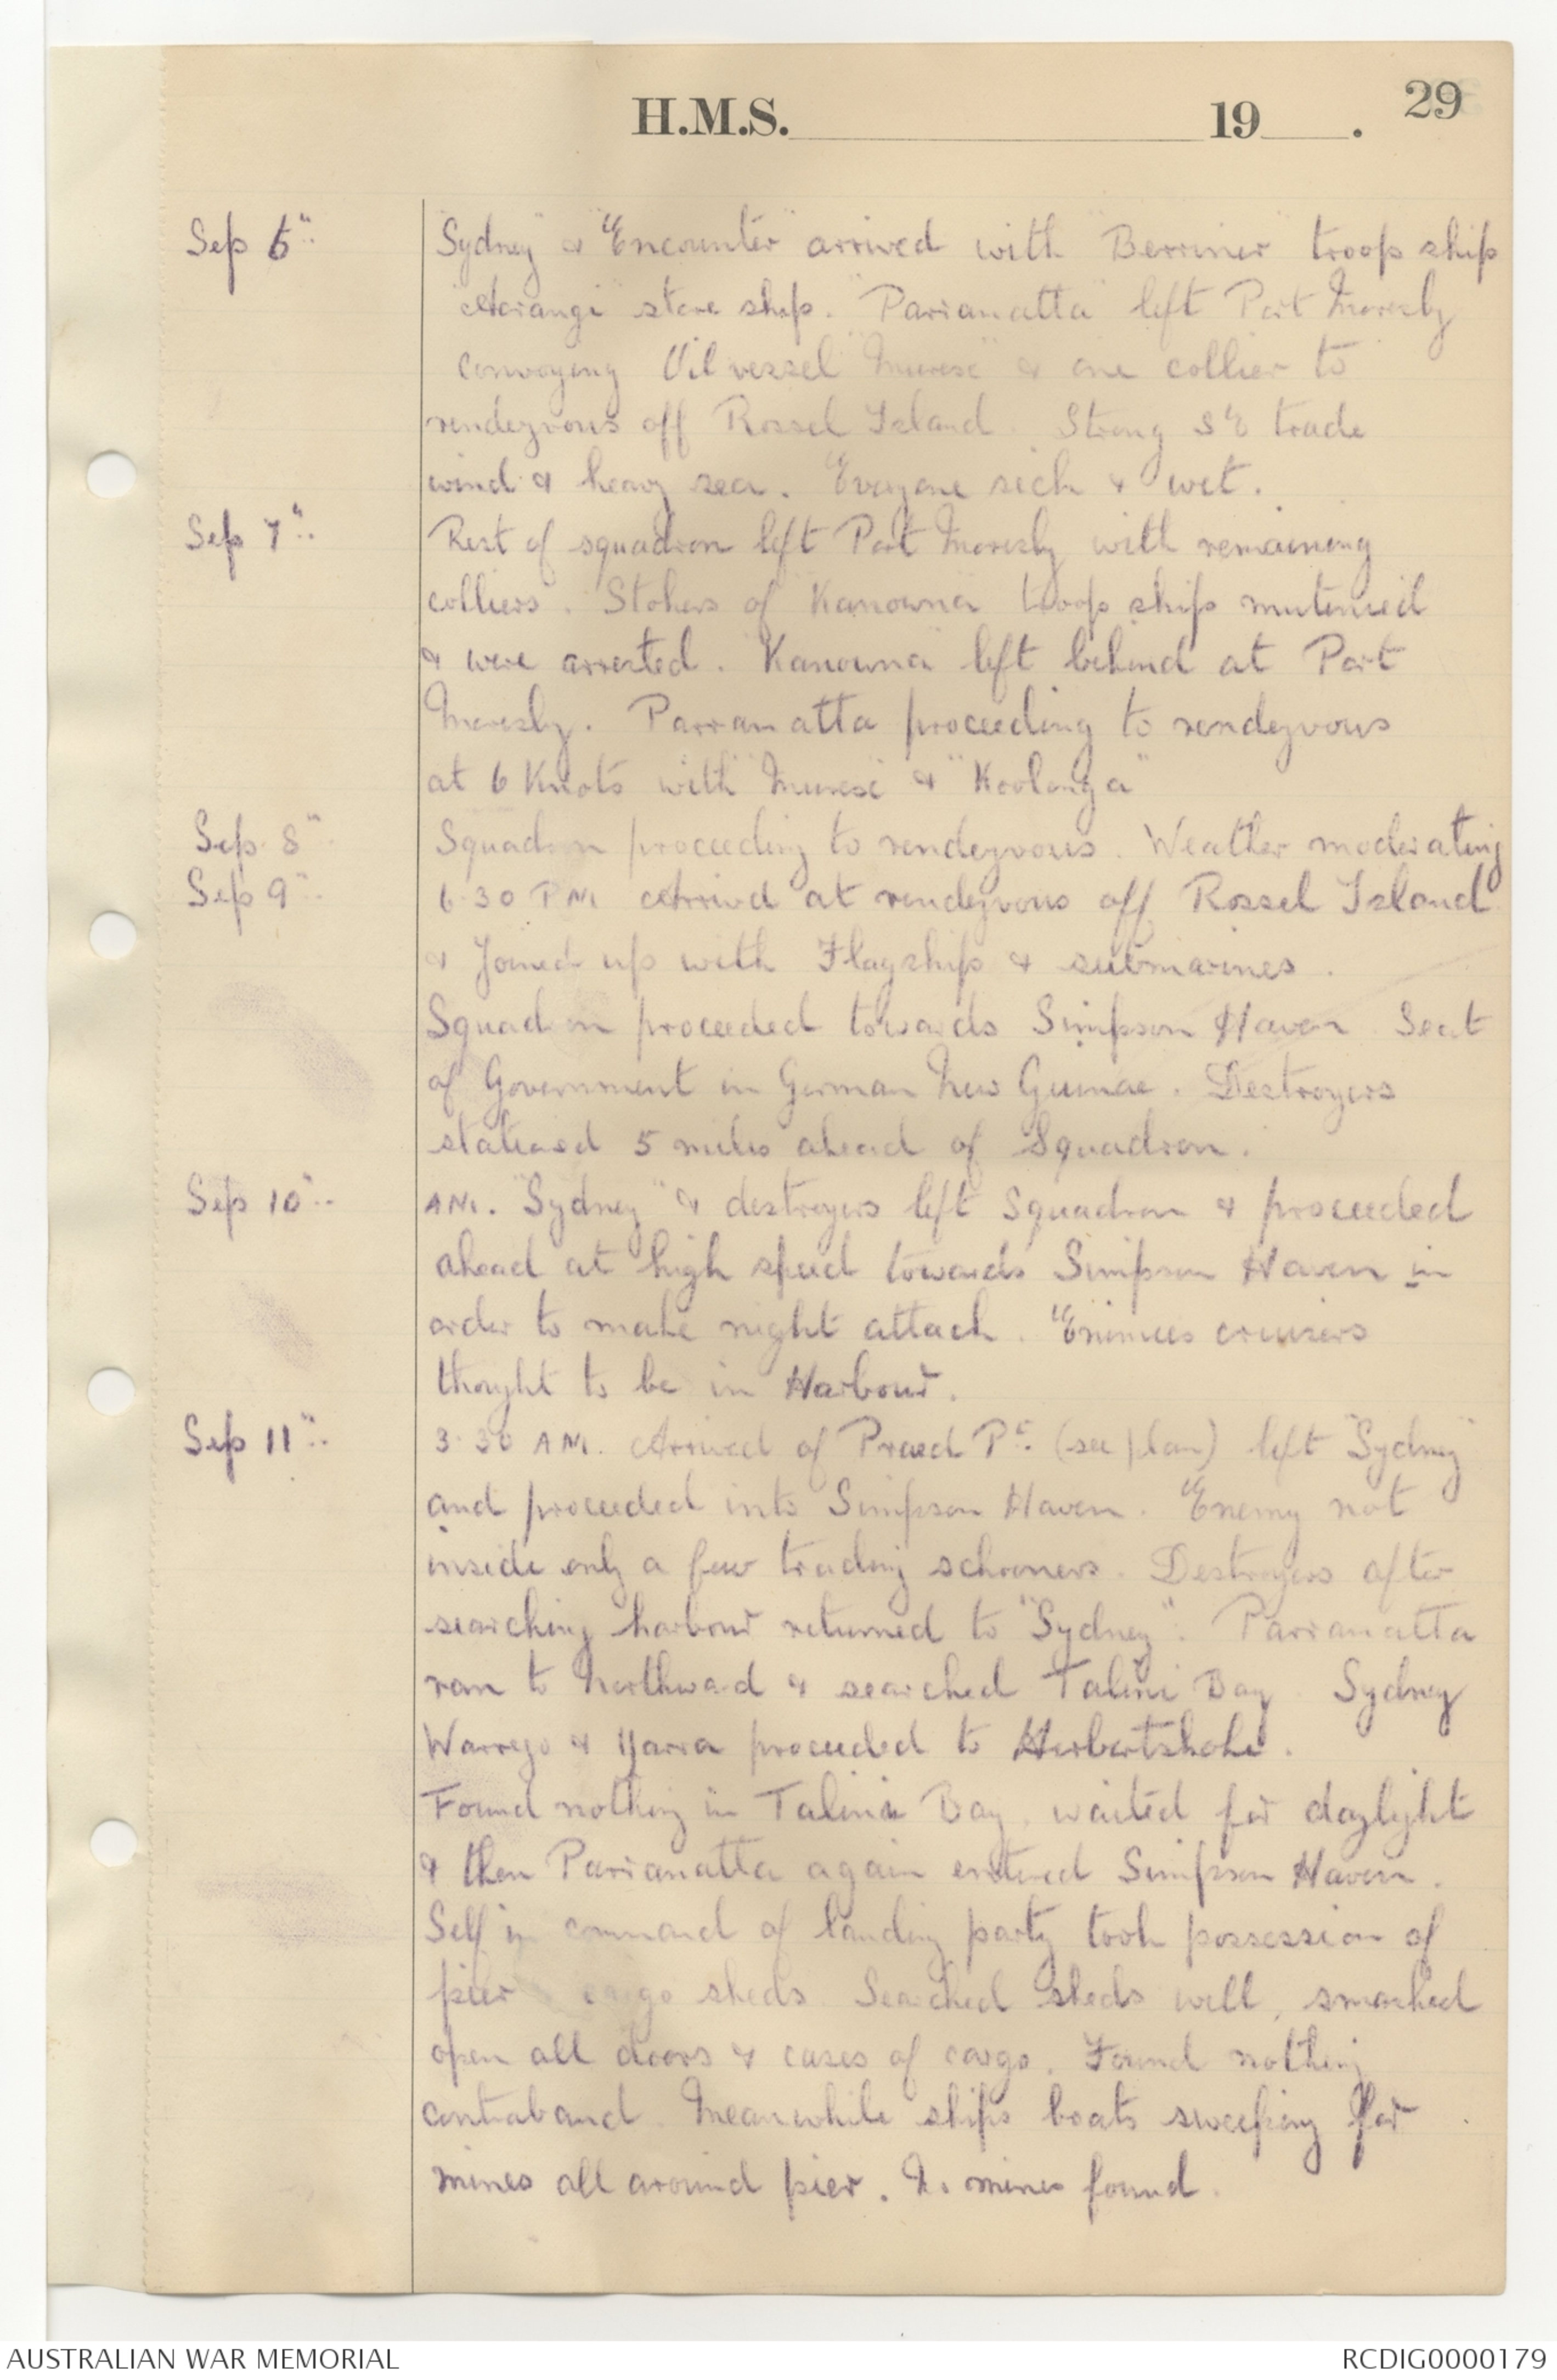 H.M.S. 19 . 29
Sep 6th "Sydney" & "Encounter" arrived with "Berrima" troop ship
"Aorangi" store ship. "Parramatta" left Port Moresby
convoying Oil vessel "Murex" & one collier to
rendezvous off Rossel Island. Strong SE trade
wind & heavy sea. Everyone sick & wet.
Sep 7th Rest of squadron left Port Moresby with remaining
colliers. Stokers of "Kanowna" troop ship mutinied
& were arrested. "Kanowna" left behind at Port
Moresby. Parramatta proceeding to rendezvous
at 6 Knots with "Murex" & "Koolonga"
Sep 8th Squadron proceeding to rendezvous. Weather moderating
Sep 9th 6.30 PM Arrived at rendezvous off Rossel Island
& Joined up with Flagship & submarines.
Squadron proceeded towards Simpson Haven Seat
of Government in German New Guinae. Destroyers
stationed 5 miles ahead of Squadron.
Sep 10th AM. "Sydney" & destroyers left Squadron & proceeded
ahead at high speed towards Simpson Haven in
order to make night attack. Enimies cruisers
thought to be in Harbour.
Sep 11th 3.30 AM. Arrived of Praed Pt. (see plan) left "Sydney"
and proceeded into Simpson Haven. Enemy not
inside only a few trading schooners. Destroyers after
searching harbour returned to "Sydney". Parramatta
ran to Northward & searched Talini Bay Sydney
Warrego & Yarra proceeded to Herbertshohe.
Found nothing in Talini Bay, waited for daylight
& then Parramatta again entered Simpson Haven.
Self in command of landing party took possession of
pier cargo sheds Searched sheds well, smashed
open all doors & cases of cargo. Found nothing
contraband. Meanwhile ships boats sweeping for
mines all around pier. No mines found.
AUSTRALIAN WAR MEMORIAL RCDIG0000179